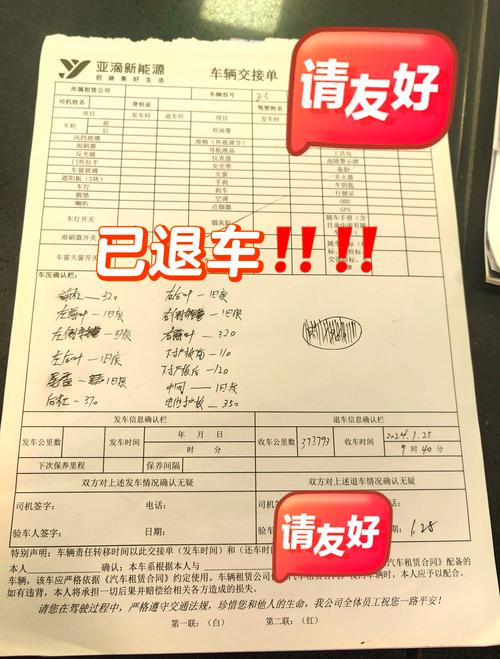 亚滴新能源
启迪美好生活
车辆交接单
请友好
所属租赁公司 车辆型号
司机姓名 身份证 驾管姓名
项目 发车时 退车时 项目
车轮 前 存油量
后 座椅(外观调节)
风挡玻璃 导航液晶 工具包
雨刷器 仪表盘 故障警示牌
反光镜 安全带 备胎
门外拉手 天窗 灭火器
车窗玻璃 手刹 车钥匙
遮阳板(2块) 刹车 行驶证
车灯 空调 OBD
脚垫 点烟器 GPS
喇叭
车灯开关 烟灰缸 随车手册(含
雨刷器开关
车窗天窗开关
已退车!!!!
车况确认栏:
320 右后叶—旧痕
左前叶—旧痕
旧痕 右前叶—320
左后叶—旧痕 —110
旧痕 —120
后杠—370 中网—旧痕
电池护板—350
发车信息确认栏 退车信息确认栏
发车公里数 发车时间 年 月 日 收车公里数 373793 收车时间 2024.1.25
时 分 9时40分
下次保养里程 保养间隔
双方对上述发车情况确认无疑 双方对上述退车情况确认无疑
司机签字: 电话:
验车人签字: 日期: 1.25
请友好
特别声明:车辆责任转移时间以此交接单(发车时间)和(还车时
本人 确认:本车系根据本人与 汽车租赁合同》配备的
车辆,该车应严格依据《汽车租赁合同》约定使用。车辆租赁公司 本人应予以配合。
如有违背,本人将承担一切后果并赔偿给相关各方造成的损失。
请您在驾驶过程中,严格遵守交通法规,珍惜您和他人的生命,我公司全体员工祝您一路平安!
第一联:(白) 第二联:(红)